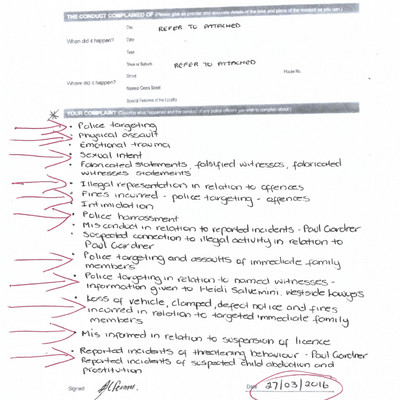 THE CONDUCT COMPLAINED OF (Please give as precise and accurate details of the time and place of the incident as you can.)
When did it happen?
Day
REFER TO ATTACHED
Date
Time
Town or Suburb
REFER TO ATTACHED
Where did it happen?
Street
House No.
Nearest Cross Street
Special Features of the Locality
* YOUR COMPLAINT (Describe what happened and the conduct of any police officers you wish to complain about.)
• Police targeting
• Physical assault
• Emotional trauma
• Sexual intent
• Fabricated statements, falsified witnesses, fabricated
witnesses statements
• Illegal representation in relation to offences
• Fines incurred - police targeting - offences
• Intimidation
• Police harrassment
• Misconduct in relation to reported incidents - Paul Gardner
• Suspected connection to illegal activity in relation to
Paul Gardner
• Police targeting and assaults of immediate family
members
• Police targeting in relation to named witnesses -
information given to Heidi Salvemini, Westside Lawyers
• Loss of vehicle, clamped, defect notice and fines
incurred in relation to targeted immediate family
members
• Mis informed in relation to suspension of licence
• Reported incidents of threatening behaviour - Paul Gardner
• Reported incidents of suspected child abduction and
prostitution
Signed
Date 27/03/2016